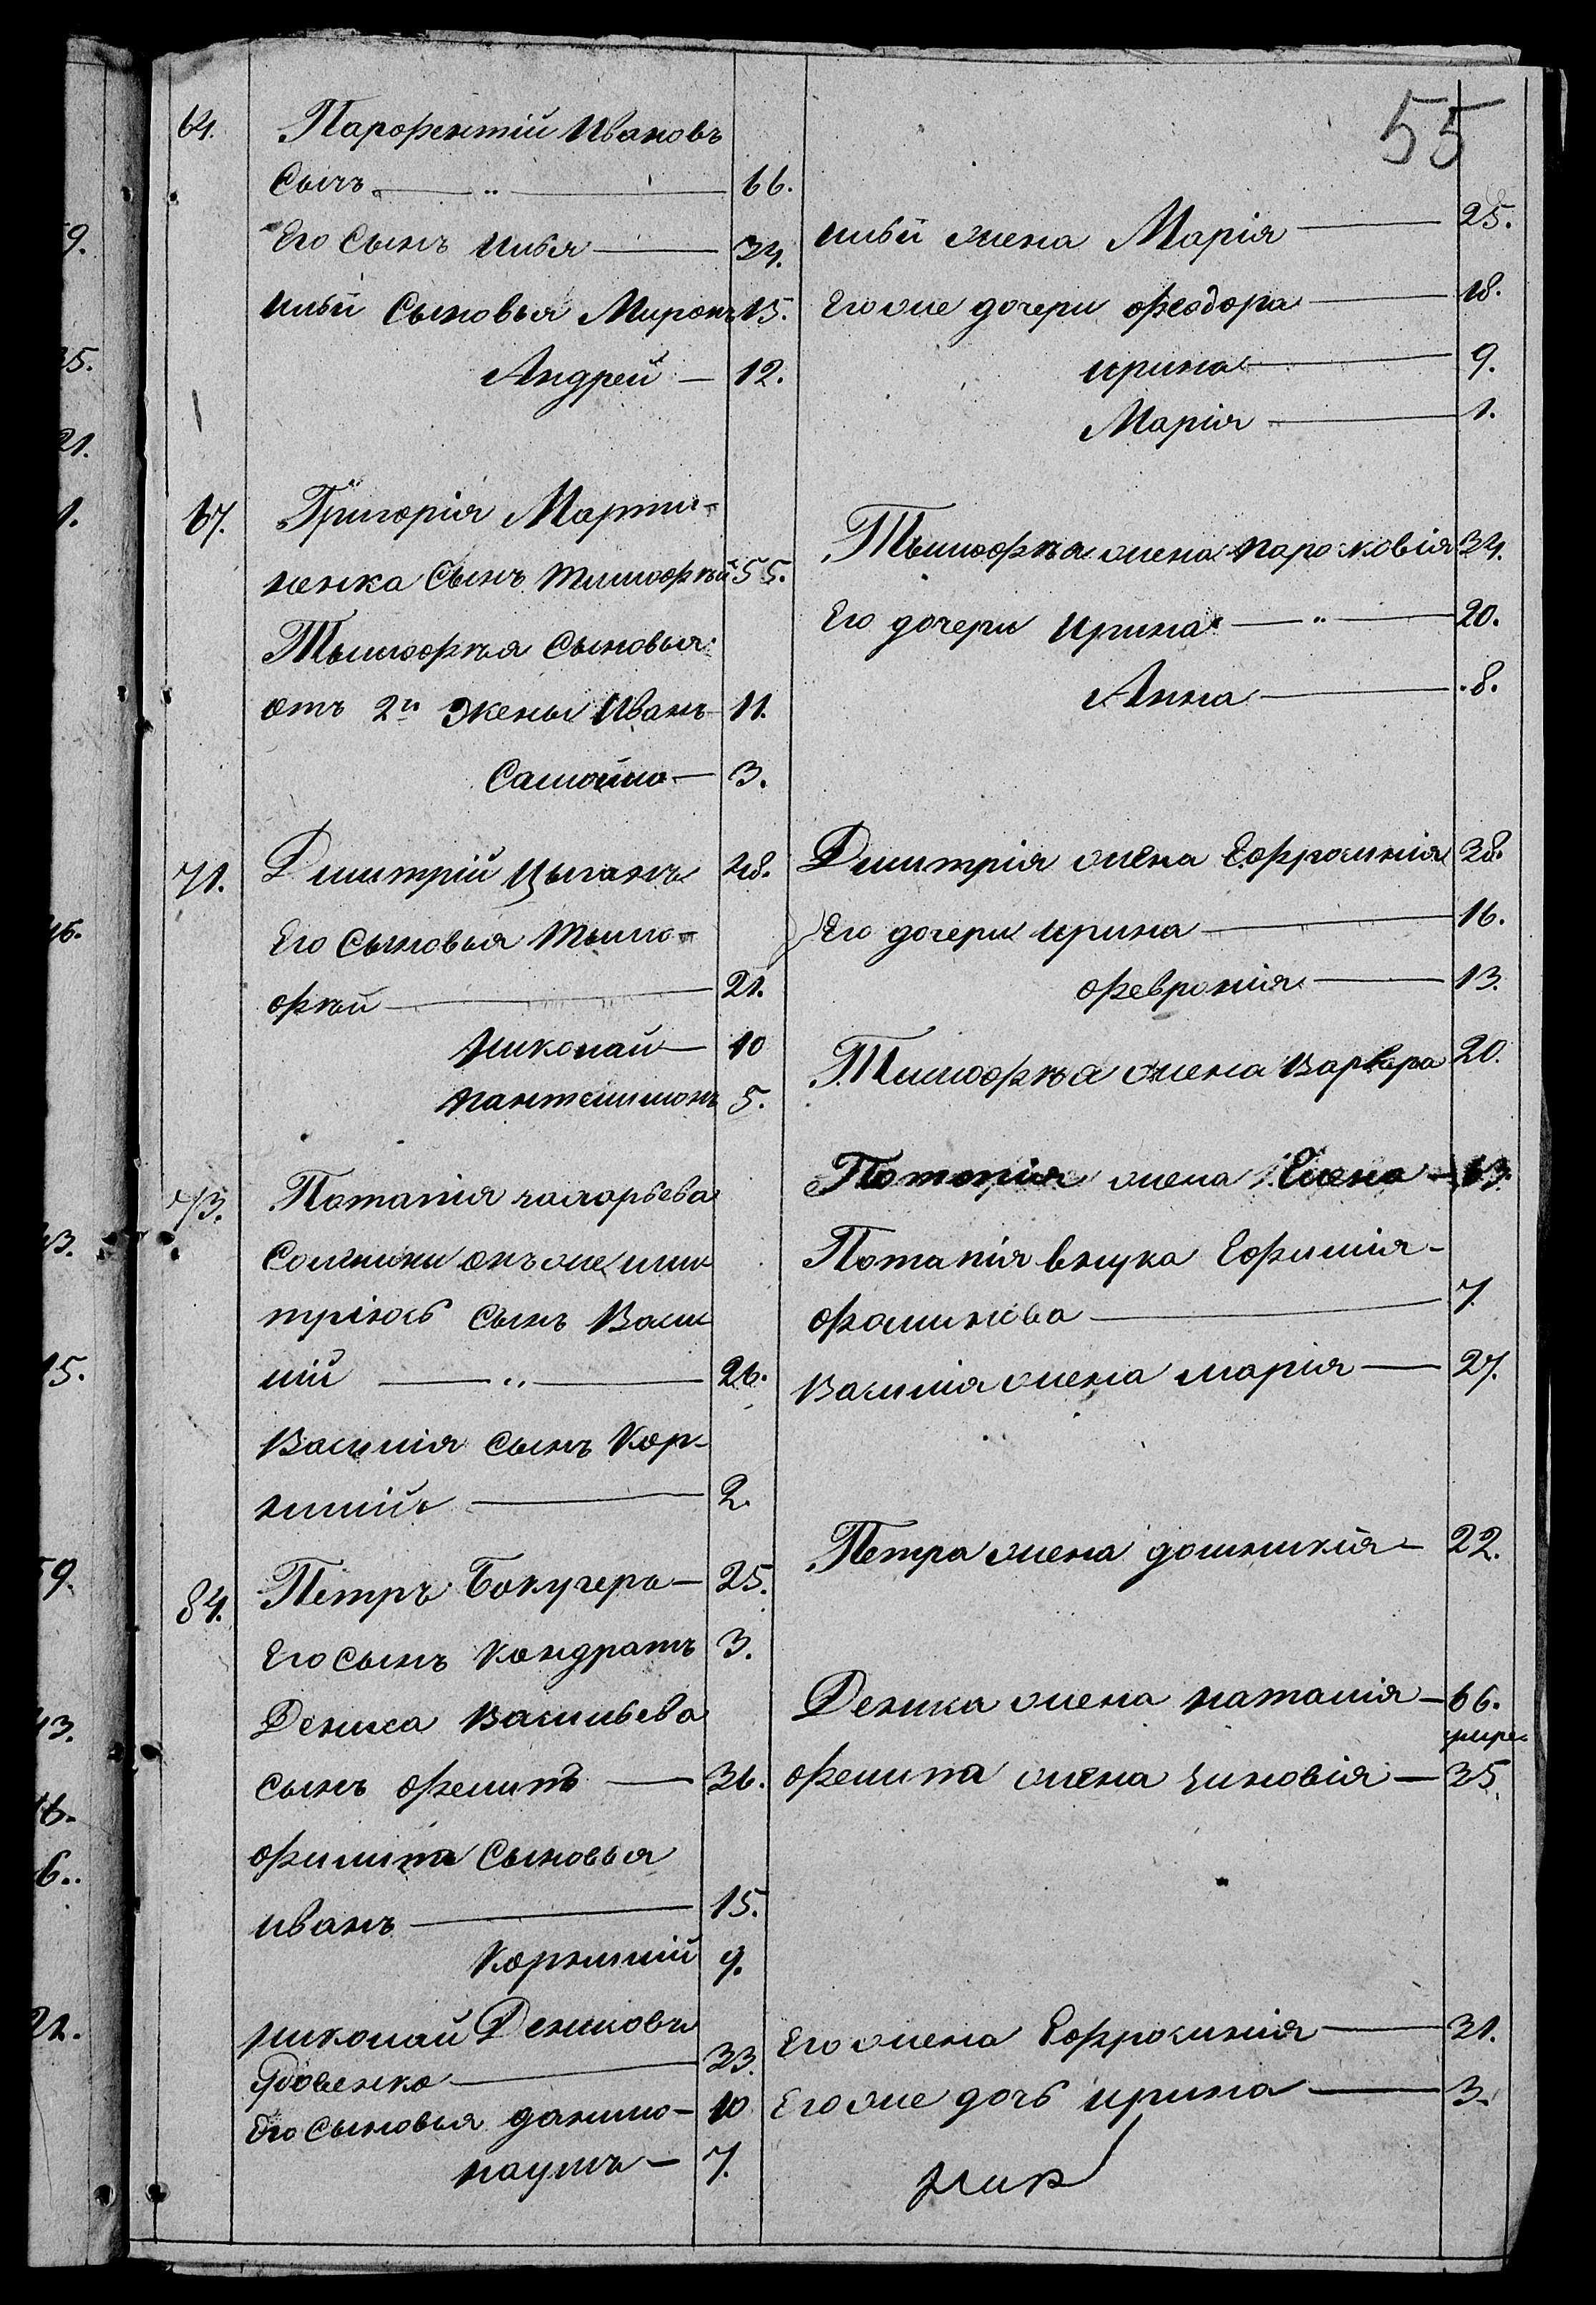 55
64. Парофентій Ивановъ
Сычъ 66.
Его Сынъ Илья 34.
Ильи Сыновья Миронъ 15.
Андрей 12.
Ильи жена Марія 25.
Его же дочери феодора 18.
ирина 9.
Марія 1.
67. Григорія Марти-
ненка Сынъ Тимофѣй 55.
Тымофѣя Сыновья
отъ 2й Жены Иванъ 11.
Самойло 3.
Тымофѣя жена парасковія 34.
Его дочери Ирина 20.
Анна 8.
71. Дмитрій Цыганъ 48.
Его Сыновья Тымо-
фѣй 21.
Николай 10
пантелимонъ 5.
Дмитрія жена Ефросинія 38.
Его дочери ирина 16.
февронія 13.
Тимофѣя жена Варвара 20.
73. Потапія
сынъ Васи
лій 26.
Василія сынъ Кор-
нилій 2.
Потапія жена Елена 63.
Потапія внука Ефимія
фоминова 7.
Василія жена марія 27.
84. Петръ Бокучера 25.
Его сынъ Кондратъ 3.
Дениса Васильева
сынъ филипъ 36.
филипа Сыновья
иванъ 15.
Корнилій 9.
николай Денисовъ
33.
Его Сыновья данило 10
наумъ 7.
Петра жена домникія 22.
Дениса жена наталія 66.
умре
филипа жена зиновія 35.
Его жена Ефросинія 31.
Его же дочь ирина 3.